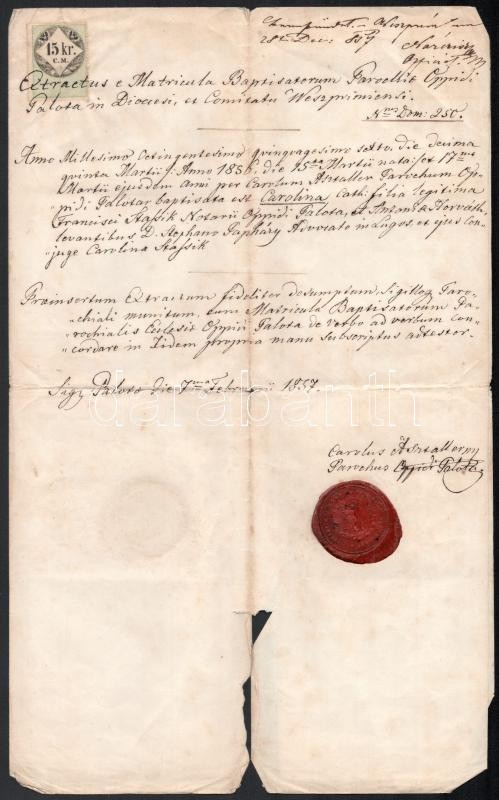 15 kr.
C.M.
28 Dec: 859
Extractus e Matricula Baptisatorum Parochiæ Oppidi
Palota in Dioecesi, et Comitatu Weszprimiensi.
Nrus Dom: 250.
Anno Millesimo Octingentesimo quinquagesimo sexto, die decima
quinta Martii f: Anno 1856, die 15ta Martii nata: et 17ma
Martii ejusdem anni per Carolum Asztaller Parochum Op-
pidi Palota baptisata est Carolina Cath: filia legitima
Francisci Stassik Notarii Oppidi Palota, et Antoniæ Horváth,
Levantibus D. Stephano Japháry Advocato et ejus Con-
juge Carolina Stassik
Præinsertum Extractum fideliter desumptum, Sigilloq Paro-
"chiali munitum, cum Matricula Baptisatorum Pa-
"rochialis Ecclesiæ Oppidi Palota de verbo ad verbum con-
"cordare in fidem propria manu Subscriptus adtestor.
Sig: Palota die 7ma Februarii 1857.
Carolus Asztaller
Parochus Oppidi Palota
darabanth.com